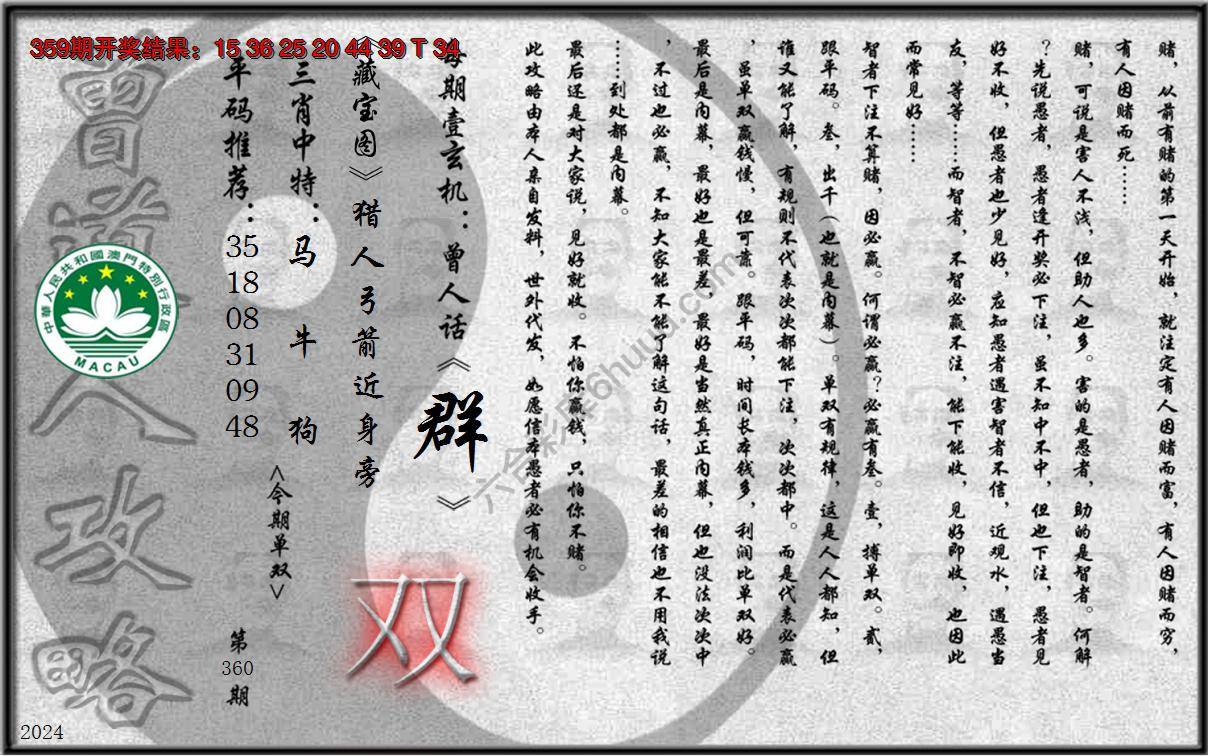 359期开奖结果：15 36 25 20 44 39 T 34
赌，从前有赌的第一天开始，就注定有人因赌而富，有人因赌而穷，
有人因赌而死……
赌，可说是害人不浅，但助人也多。害的是愚者，助的是智者。何解
？先说愚者，愚者逢开奖必下注，虽不知中不中，但也下注，愚者见
好不收，但愚者也少见好，应知愚者遇害智者不信，近观水，遇愚当
友，等等……而智者，不智必赢不注，能下能收，见好即收，也因此
而常见好……
智者下注不算赌，因必赢。何谓必赢？必赢有叁。壹，搏单双。贰，
跟平码。叁，出千（也就是内幕）。单双有规律，这是人人都知，但
谁又能了解，有规则不代表次次都能下注，次次都中。而是代表必赢
，虽单双赢钱慢，但可靠。跟平码，时间长本钱多，利润比单双好。
最后是内幕，最好也是最差，最好是当然真正内幕，但也没法次次中
，不过也必赢，不知大家能不能了解这句话，最差的相信也不用我说
……到处都是内幕。
最后还是对大家说，见好就收。不怕你赢钱，只怕你不赌。
此攻略由本人亲自发料，世外代发，如愿信本愚者必有机会收手。
每期壹玄机：曾人话《群》
《藏宝图》猎人弓箭近身旁
三肖中特：马 牛 狗
平码推荐：35 18 08 31 09 48
<今期单双>
双
第360期
曾道人攻略
中華人民共和國澳門特別行政區
MACAU
六合彩库6huuu.com
2024